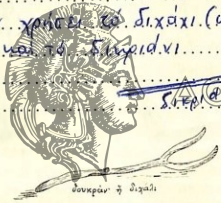 χρήσει τὸ διχάχι. (
καὶ τὸ δικριάνι
δικριά
δουκράν' ἢ διχάλι